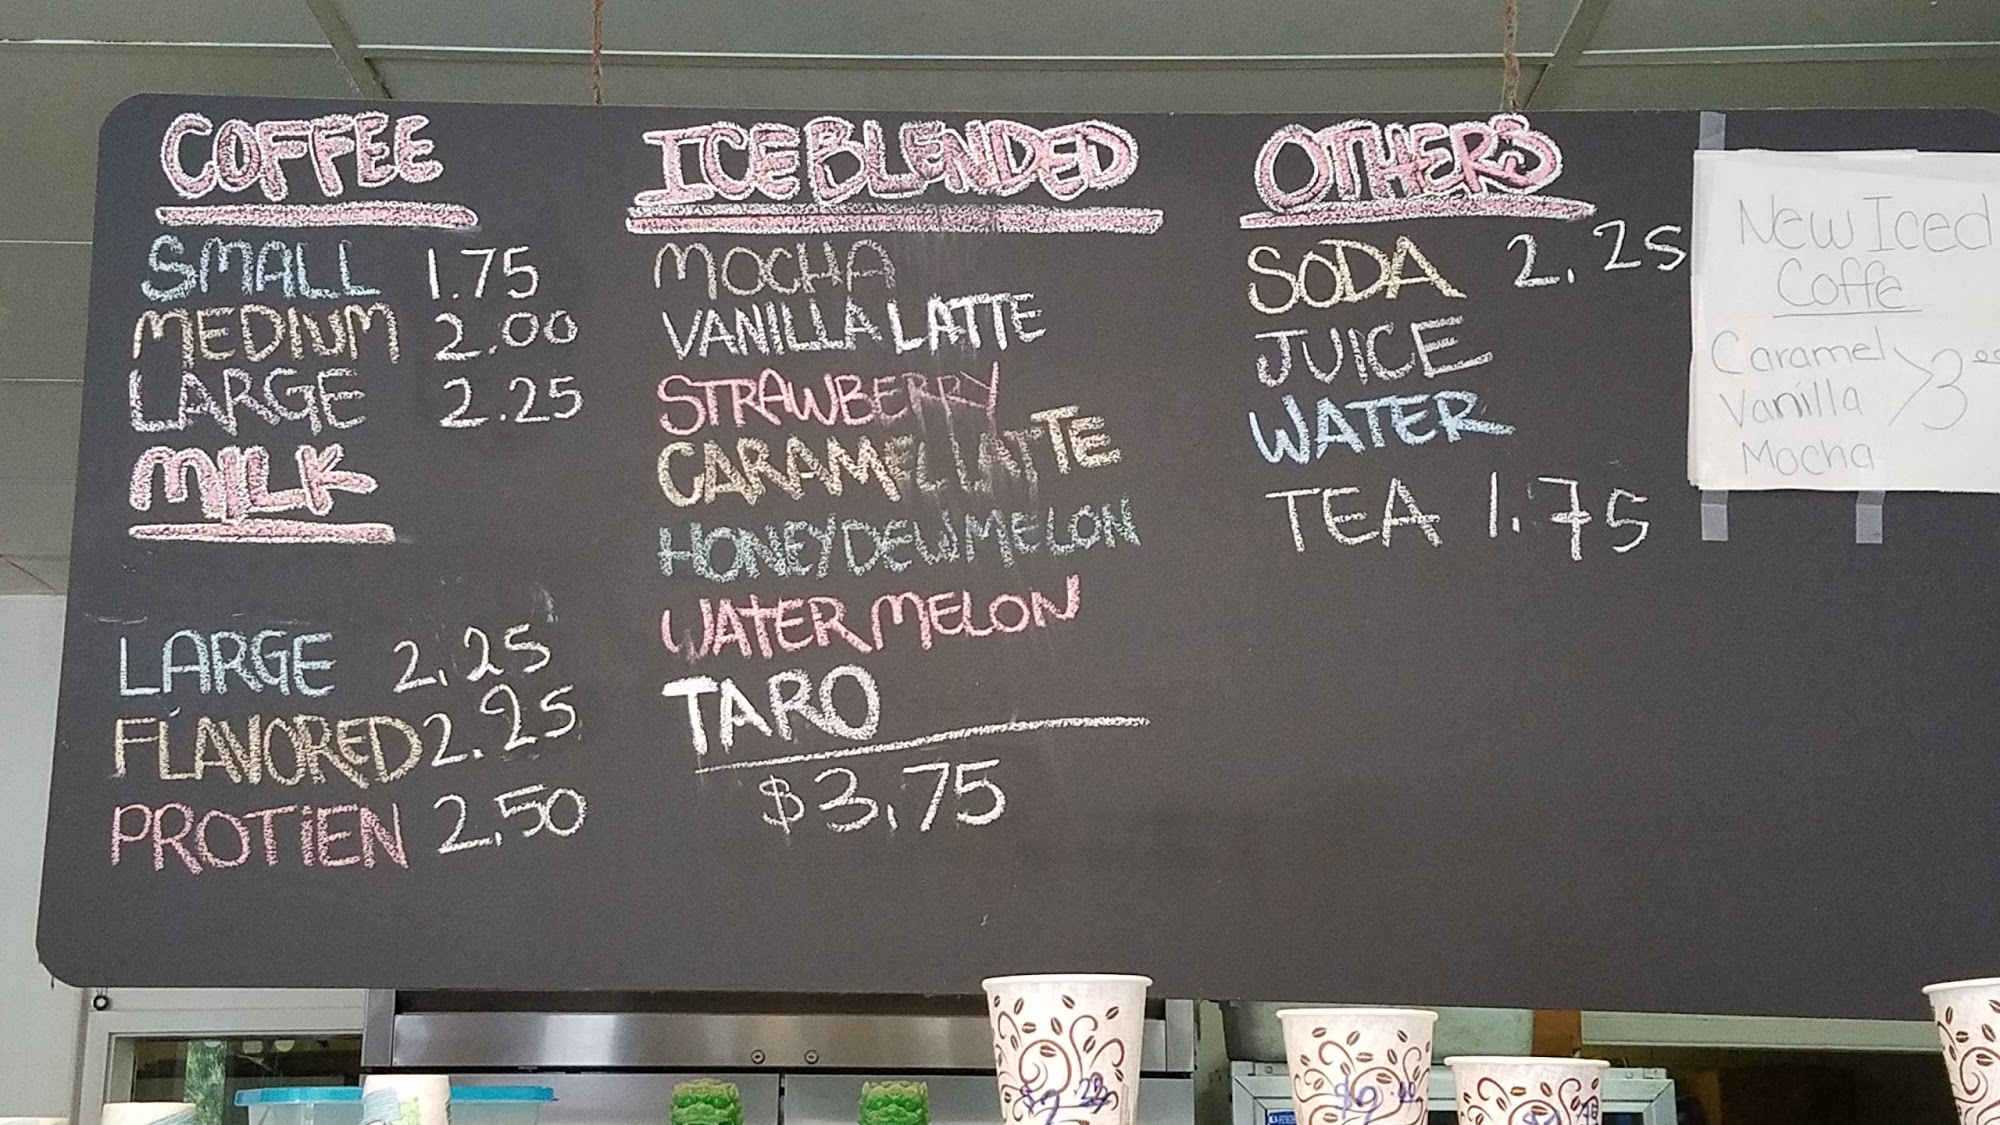 COFFEE
SMALL 1.75
MEDIUM 2.00
LARGE 2.25
MILK
LARGE 2.25
FLAVORED 2.25
PROTIEN 2.50
ICE BLENDED
MOCHA
VANILLA LATTE
STRAWBERRY
CARAMEL LATTE
HONEYDEW MELON
WATERMELON
TARO
$3.75
OTHERS
SODA 2.25
JUICE
WATER
TEA 1.75
New Iced
Coffe
Caramel
Vanilla 3.00
Mocha
$2.25
$2.00